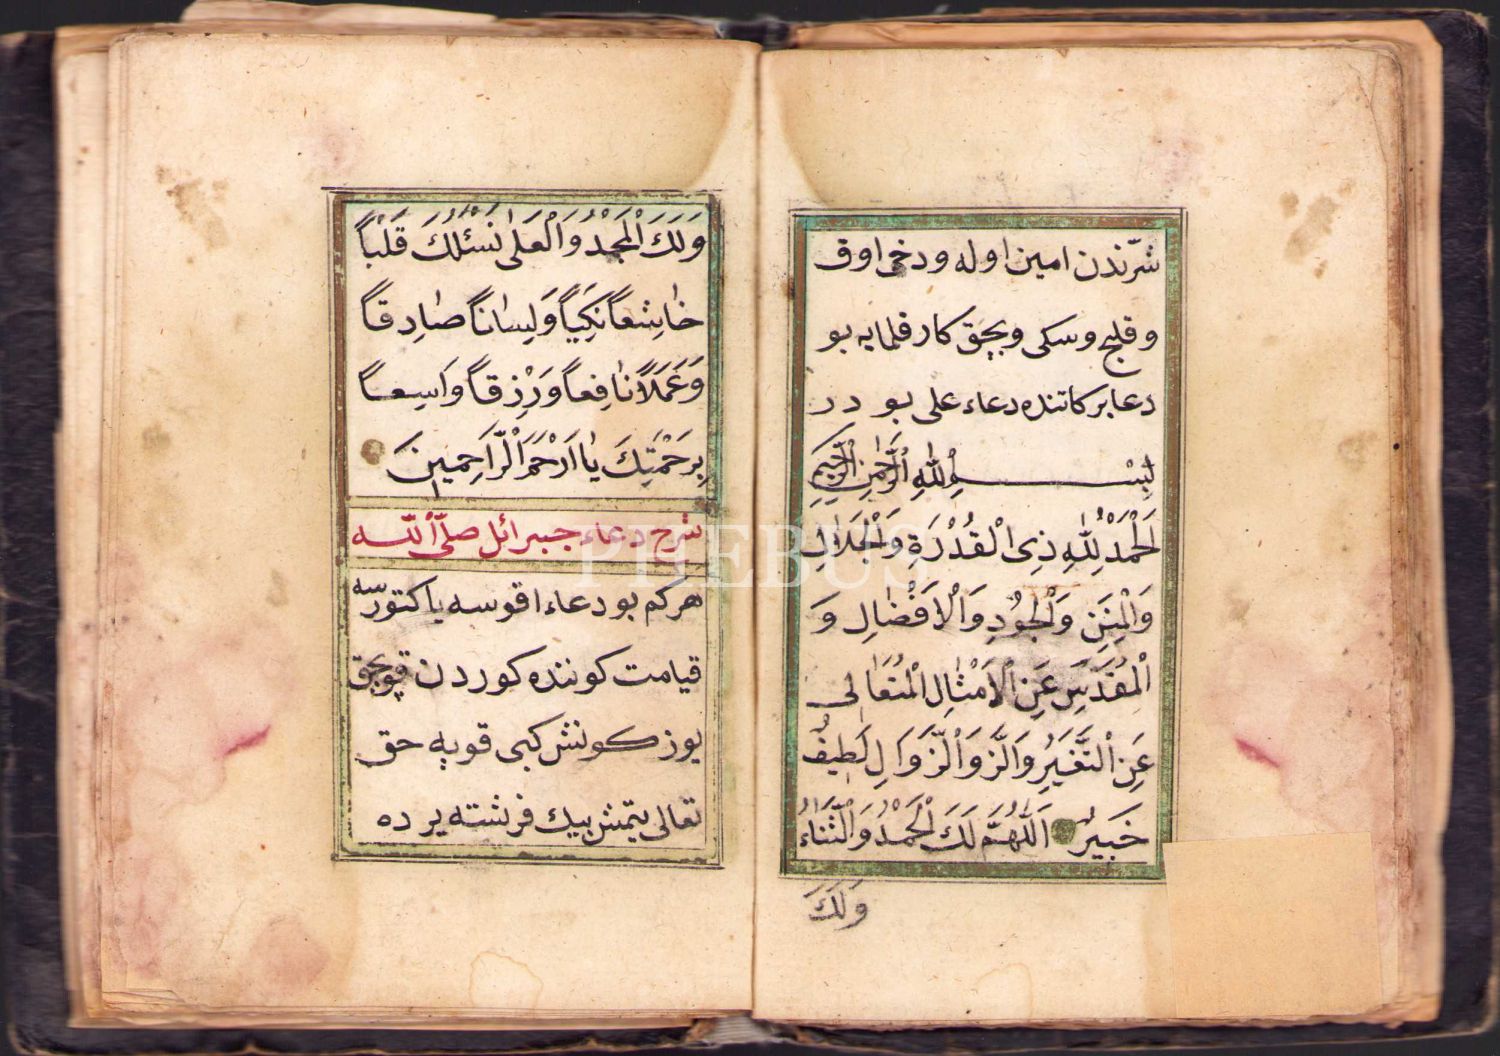 شرّندن امين اوله ودخى اوق
و قليج وسكى وبچق كار قلمايه بو
دعا بركاتنده دعاء على بو در
بِسْمِ اللّٰهِ الرَّحْمٰنِ الرَّحِيمِ
اَلْحَمْدُ لِلّٰهِ ذِى الْقُدْرَةِ وَالْجَلَالِ
وَالْمِنَنِ وَالْجُودِ وَالْاَفْضَالِ وَ
الْمُقَدَّسِ عَنِ الْاَمْثَالِ الْمُتَعَالِى
عَنِ التَّغَيُّرِ وَالزَّوَالِ لَطِيفٌ
خَبِيرٌ اَللّٰهُمَّ لَكَ الْحَمْدُ وَالثَّنَاءُ
وَلَكَ
وَلَكَ الْمَجْدُ وَالْعَلٰى نَسْئَلُكَ قَلْبًا
خَاشِعًا زَكِيًّا وَلِسَانًا صَادِقًا
وَعَمَلًا نَافِعًا وَرِزْقًا وَاسِعًا
بِرَحْمَتِكَ يَا اَرْحَمَ الرَّاحِمِينَ
شرح دعاء جبرائل صلّى اللّه
هر كم بو دعاء اقوسه ياكتورسه
قيامت كوننده كوردن قوپجق
يوز كونش كبى قوپه حق
تعالى يتمش بيك فرشته يرده
PHEBUS